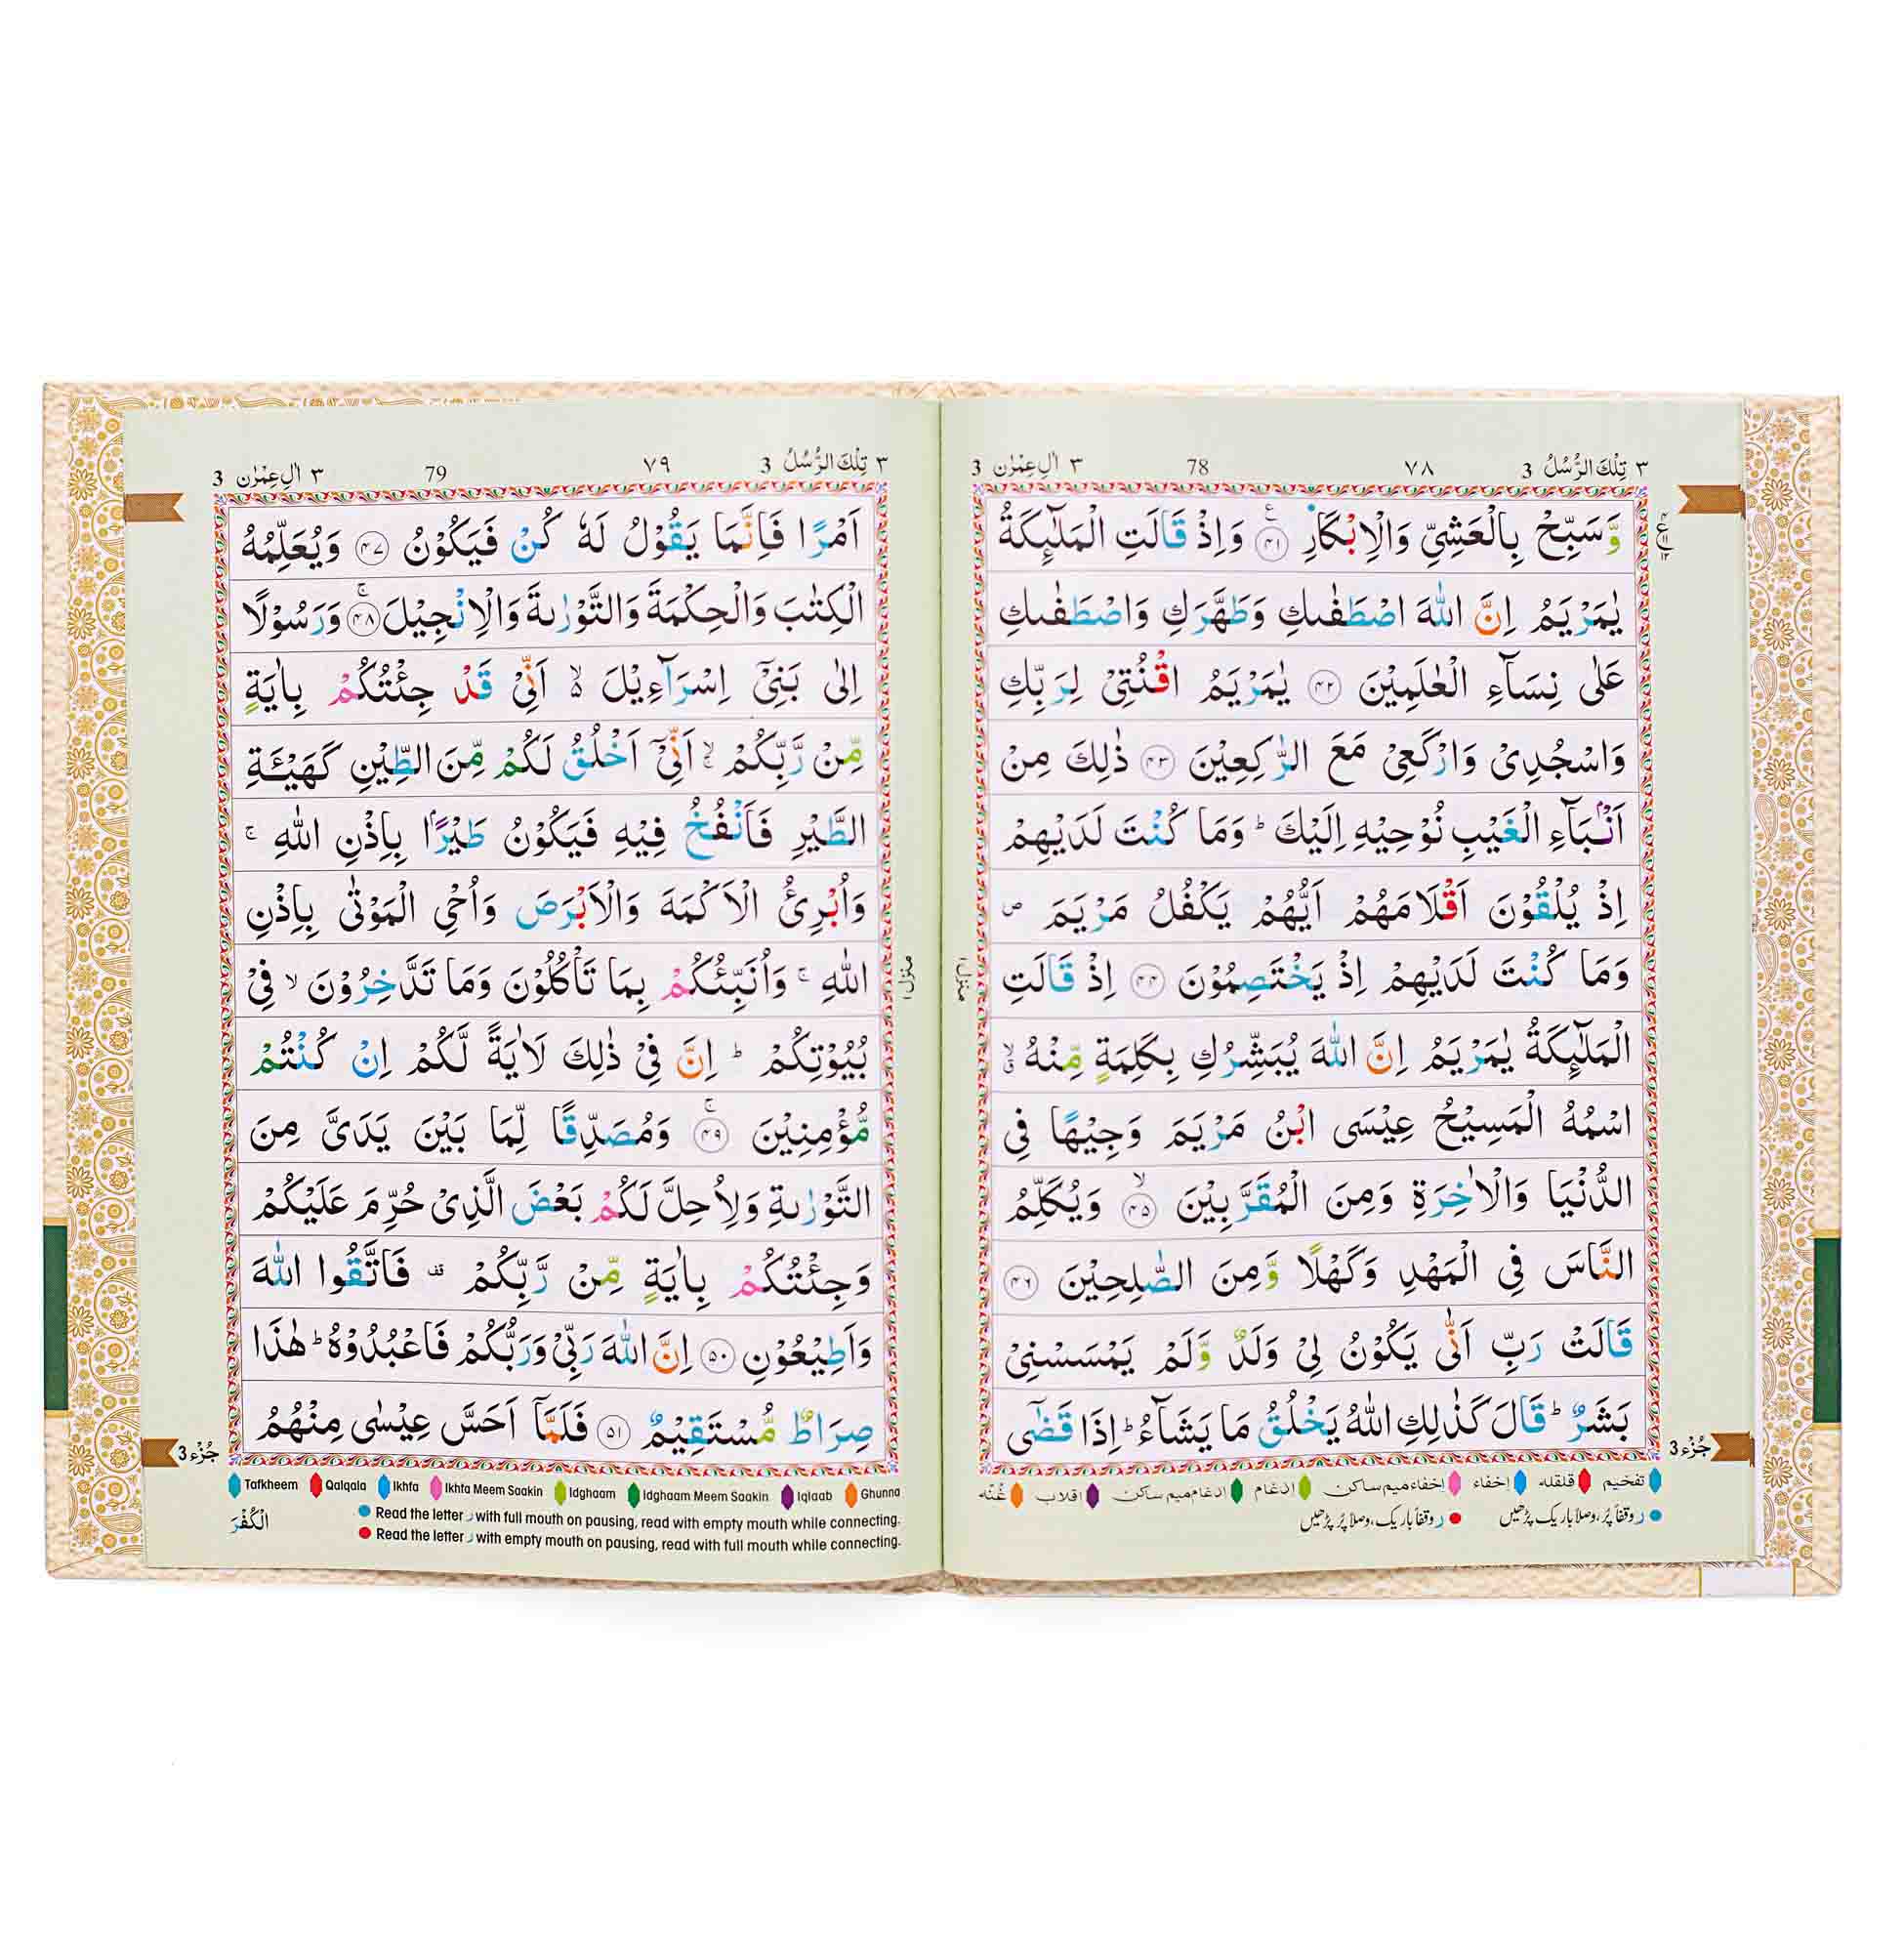 ٣ تِلْكَ الرُّسُلُ 3
٧٨
78
٣ اٰلِ عِمْرٰن 3
وَّسَبِّحْ بِالْعَشِيِّ وَالْاِبْكَارِ ۴۱ وَاِذْ قَالَتِ الْمَلٰٓئِكَةُ
يٰمَرْيَمُ اِنَّ اللّٰهَ اصْطَفٰىكِ وَطَهَّرَكِ وَاصْطَفٰىكِ
عَلٰى نِسَآءِ الْعٰلَمِيْنَ ۴۲ يٰمَرْيَمُ اقْنُتِيْ لِرَبِّكِ
وَاسْجُدِيْ وَارْكَعِيْ مَعَ الرّٰكِعِيْنَ ۴۳ ذٰلِكَ مِنْ
اَنْۢبَآءِ الْغَيْبِ نُوْحِيْهِ اِلَيْكَ ؕ وَمَا كُنْتَ لَدَيْهِمْ
اِذْ يُلْقُوْنَ اَقْلَامَهُمْ اَيُّهُمْ يَكْفُلُ مَرْيَمَ ص
وَمَا كُنْتَ لَدَيْهِمْ اِذْ يَخْتَصِمُوْنَ ۴۴ اِذْ قَالَتِ
الْمَلٰٓئِكَةُ يٰمَرْيَمُ اِنَّ اللّٰهَ يُبَشِّرُكِ بِكَلِمَةٍ مِّنْهُ
اسْمُهُ الْمَسِيْحُ عِيْسَى ابْنُ مَرْيَمَ وَجِيْهًا فِي
الدُّنْيَا وَالْاٰخِرَةِ وَمِنَ الْمُقَرَّبِيْنَ ۴۵ وَيُكَلِّمُ
النَّاسَ فِي الْمَهْدِ وَكَهْلًا وَّمِنَ الصّٰلِحِيْنَ ۴۶
قَالَتْ رَبِّ اَنّٰى يَكُوْنُ لِيْ وَلَدٌ وَّلَمْ يَمْسَسْنِيْ
بَشَرٌ ؕ قَالَ كَذٰلِكِ اللّٰهُ يَخْلُقُ مَا يَشَآءُ ؕ اِذَا قَضٰٓى
منزل ۱
جُزْء 3
تفخیم قلقله إخفاء إخفاء ميم ساكن إدغام إدغام ميم ساكن اقلاب غُنّه
ر وقفاً پُر، وصلاً باریک پڑھیں
ر وقفاً باریک، وصلاً پُر پڑھیں
٣ تِلْكَ الرُّسُلُ 3
٧٩
79
٣ اٰلِ عِمْرٰن 3
اَمْرًا فَاِنَّمَا يَقُوْلُ لَهٗ كُنْ فَيَكُوْنُ ۴۷ وَيُعَلِّمُهُ
الْكِتٰبَ وَالْحِكْمَةَ وَالتَّوْرٰىةَ وَالْاِنْجِيْلَ ۴۸ وَرَسُوْلًا
اِلٰى بَنِيْٓ اِسْرَآءِيْلَ ۙ اَنِّيْ قَدْ جِئْتُكُمْ بِاٰيَةٍ
مِّنْ رَّبِّكُمْ ۙ اَنِّيْٓ اَخْلُقُ لَكُمْ مِّنَ الطِّيْنِ كَهَيْـَٔةِ
الطَّيْرِ فَاَنْفُخُ فِيْهِ فَيَكُوْنُ طَيْرًۢا بِاِذْنِ اللّٰهِ ۚ
وَاُبْرِئُ الْاَكْمَهَ وَالْاَبْرَصَ وَاُحْيِ الْمَوْتٰى بِاِذْنِ
اللّٰهِ ۚ وَاُنَبِّئُكُمْ بِمَا تَاْكُلُوْنَ وَمَا تَدَّخِرُوْنَ ۙ فِيْ
بُيُوْتِكُمْ ؕ اِنَّ فِيْ ذٰلِكَ لَاٰيَةً لَّكُمْ اِنْ كُنْتُمْ
مُّؤْمِنِيْنَ ۴۹ وَمُصَدِّقًا لِّمَا بَيْنَ يَدَيَّ مِنَ
التَّوْرٰىةِ وَلِاُحِلَّ لَكُمْ بَعْضَ الَّذِيْ حُرِّمَ عَلَيْكُمْ
وَجِئْتُكُمْ بِاٰيَةٍ مِّنْ رَّبِّكُمْ قف فَاتَّقُوا اللّٰهَ
وَاَطِيْعُوْنِ ۵۰ اِنَّ اللّٰهَ رَبِّيْ وَرَبُّكُمْ فَاعْبُدُوْهُ ؕ هٰذَا
صِرَاطٌ مُّسْتَقِيْمٌ ۵۱ فَلَمَّآ اَحَسَّ عِيْسٰى مِنْهُمُ
منزل ۱
جُزْء 3
Tafkheem Qalqala Ikhfa Ikhfa Meem Saakin Idghaam Idghaam Meem Saakin Iqlaab Ghunna
Read the letter ر with full mouth on pausing, read with empty mouth while connecting.
Read the letter ر with empty mouth on pausing, read with full mouth while connecting.
الْكُفْرَ